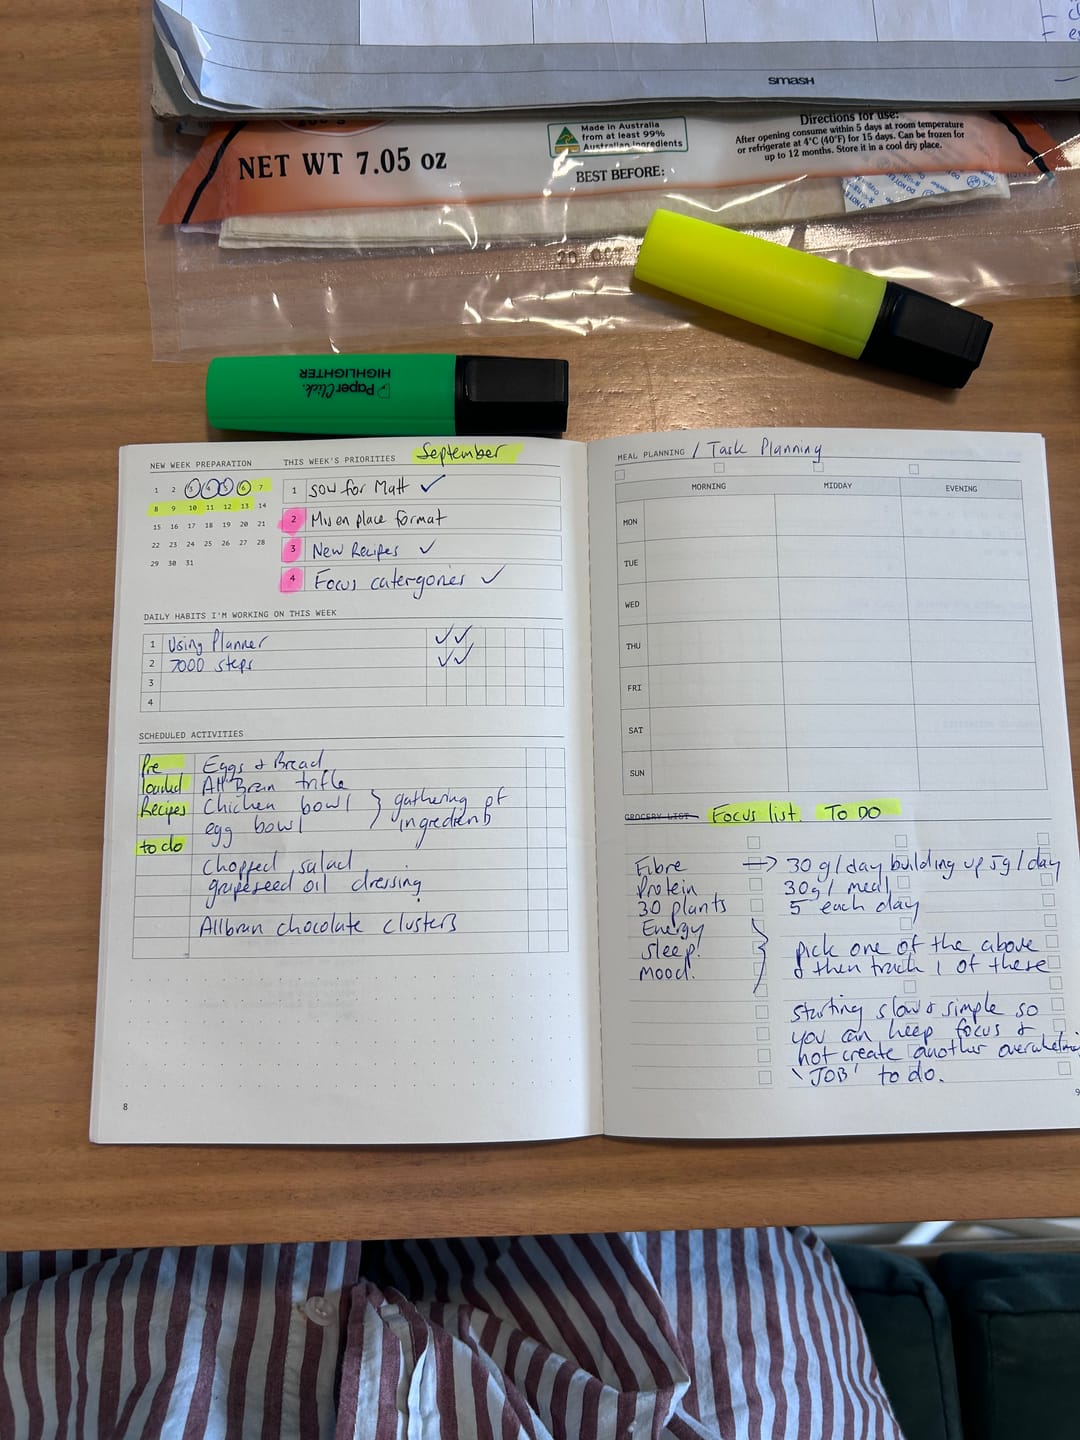 smash
NET WT 7.05 oz
Made in Australia
from at least 99%
Australian ingredients
BEST BEFORE:
Directions for use:
After opening consume within 5 days at room temperature
or refrigerate at 4°C (40°F) for 15 days. Can be frozen for
up to 12 months. Store it in a cool dry place.
20 OCT
PaperClick.
HIGHLIGHTER
NEW WEEK PREPARATION
1 2 3 4 5 6 7
8 9 10 11 12 13 14
15 16 17 18 19 20 21
22 23 24 25 26 27 28
29 30 31
THIS WEEK'S PRIORITIES September
1 SOW for Matt ✓
2 Mis en place format
3 New Recipes ✓
4 Focus catergories ✓
DAILY HABITS I'M WORKING ON THIS WEEK
1 Using Planner ✓✓
2 7000 steps ✓✓
3
4
SCHEDULED ACTIVITIES
Pre Eggs & Bread
loaded All Bran trifle
Recipes Chicken bowl } gathering of
egg bowl ingredients
to do
Chopped salad
grapeseed oil dressing
Allbran chocolate clusters
8
MEAL PLANNING / Task Planning
MORNING MIDDAY EVENING
MON
TUE
WED
THU
FRI
SAT
SUN
GROCERY LIST Focus list. TO DO
Fibre → 30g/day building up 5g/day
Protein 30g/ meal
30 plants 5 each day
Energy
Sleep. } pick one of the above
Mood. & then track 1 of these
starting slow & simple so
you can keep focus &
not create another
'JOB' to do.
9